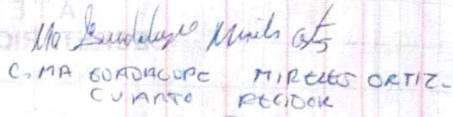 Ma Guadalupe Mireles Ortiz
C. MA GUADALUPE MIRELES ORTIZ-
CUARTO REGIDOR